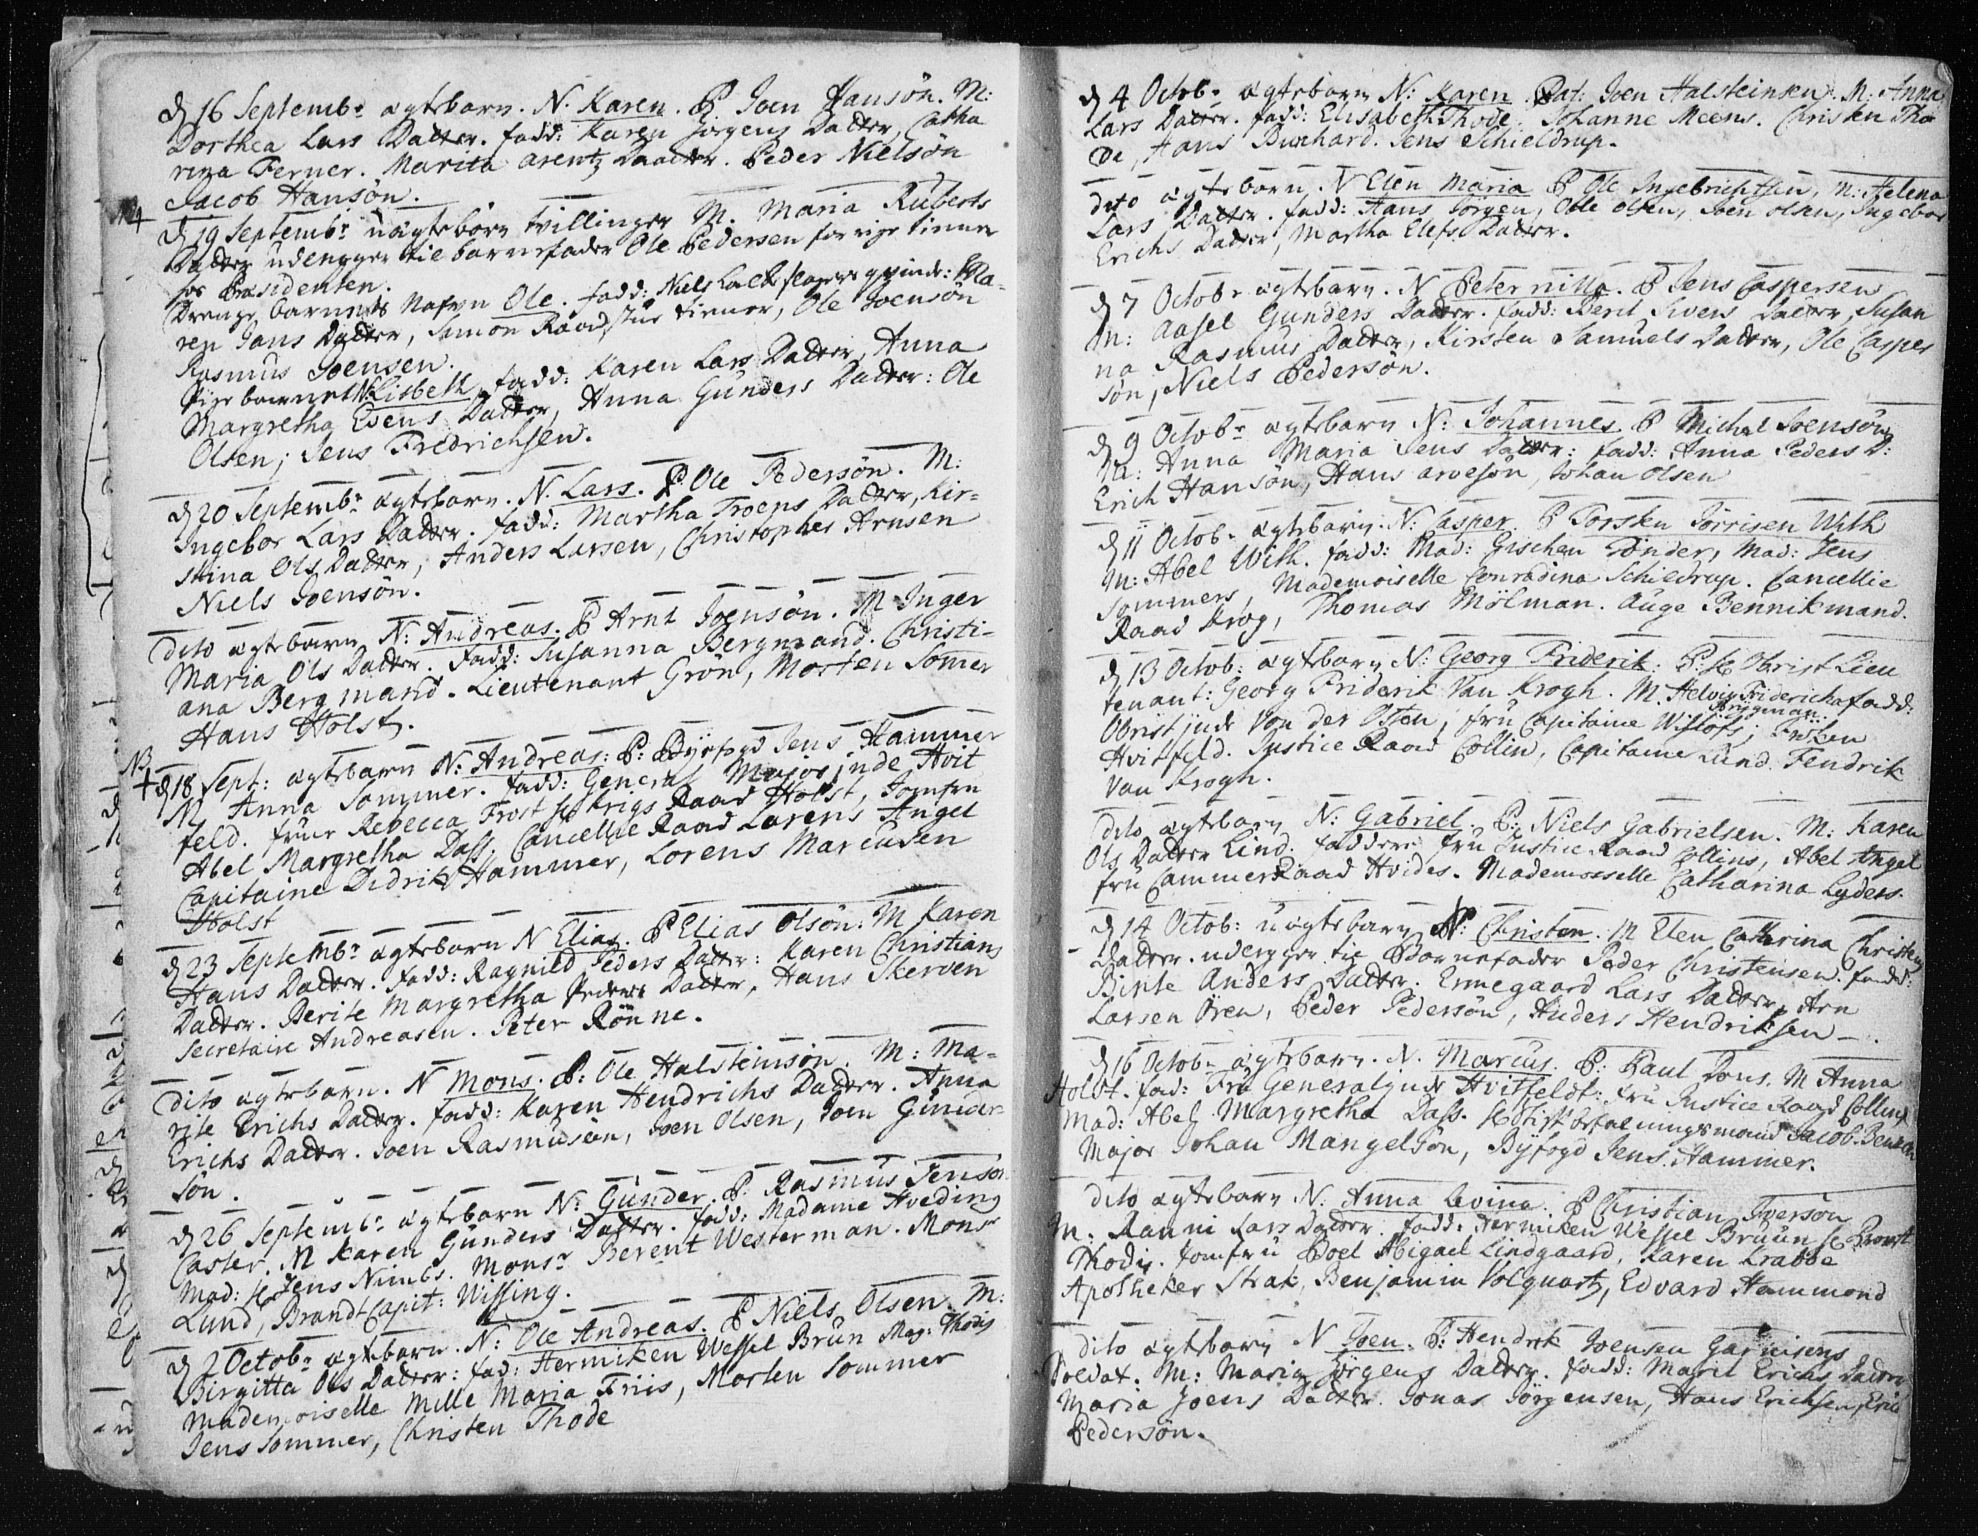 d 16 Septembr ægtebarn. N. Karen. P Joen Hansön. M:
Dorthea Lars Datter. fadd: Karen Jörgens Datter, Catha
rina Ferner. Marita arentz Daatter. Peder Nielsön
Jacob Hansön.
d 19 Septembr uægtebörn tvillinger M. Maria Ruberts
Datter udlegger til barnefader Ole Pedersen forrige tienner
hos Præsidenten.
Drenge barnets Nafvn Ole. fadd: Niels qvinde: Ma-
ren Jans Datter, Simon Raadstue tienner, Ole Joensön
Rasmus Joensen.
Pige barnet N: Lisbeth, fadd: Karen Lars Datter, Anna
Margretha Evens Datter, Anna Gunders Datter: Ole
Olsen; Jens Fredrichsen.
d 20 Septembr ægtebarn. N. Lars. P Ole Pedersön. M:
Ingebor Lars Datter. fadd: Martha Troens Datter, Kir-
stina Ols Datter, Anders Larsen, Christopher Arnsen
Niels Joensön.
dito ægtebarn N: Andreas. P Arnt Joensön. M Inger
Maria Ols Datter. Fadd: Susanna Bergmand. Christi-
ana Bergmand. Lieutenant Grön, Morten Somer
Hans Holst.
NB
+ d 18 Sept: ægtebarn N: Andreas: P: Byefogd Jens Hammer
M Anna Sommer. fadd: General Majorinde Hvit
feld. fruer Rebecca Frost sl Krigs Raad Holst, Jomfru
Abel Margretha Dass. Cancellie Raad Lorens Angel
Capitaine Didrik Hammer, Lorens Marcusen
Holst
d 23 Septembr ægtebarn N Elias. P Elias Olsön. M Karen
Hans Datter. fadd: Ragnild Peders Datter: Karen Christians
Datter. Berite Margretha Peders Datter, Hans Skerven
Secretaire Andreasen. Peter Rönne.
dito ægtebarn. N Mons. P: Ole Halsteinsön. M: Ma-
rite Erichs Datter. fadd: Karen Hendrichs Datter. Anna
Erichs Datter. Joen Rasmusön, Joen Olsen, Joen Gunder
sön.
d 26 Septembr ægtebarn N: Gunder. P. Rasmus Jensön
Caster. M Karen Gunders Datter. fadd: Madame Hveding
Mad: sl Jens Nimbs. Monsr Berent Westerman. Monsr
Lund, Brandt Capit: Wissing.
d 2 Octobr ægtebarn. N: Ole Andreas. P Niels Olsen. M:
Birgitta Ols Datter: fad: Hermiken Wessel Brun Mag: Thodis
Mademoiselle Mille Maria Friis, Morten Sommer
Jens Sommer, Christen Thode
d 4 Octobr ægtebarn N: Karen. Pat: Joen Halsteinsen. M: Anna
Lars Datter. fadd: Elisabeth Thode. Johanne Meens. Christen Tho
de, Hans Burchard. Jens Schieldrup.
dito ægtebarn. N Elen Maria P Ole Ingebrichtsen, M: Helena
Lars Datter. fadd: Hans Jörgen, Olle Olsen, Joen Olsen, Ingebor
Erichs Datter, Martha Elefs Datter.
d 7 Octobr ægtebarn. N Peternilla. P Jens Caspersen
M: Aasel Gunders Datter. fadd: Berit Sivers Datter, Susan
na Rasmus Datter, Kirsten Samuels Datter, Ole Casper
sön, Niels Pedersön.
d 9 Octobr ægtebarn N: Johannes P Michel Svensön
M: Anna Maria Jens Datter: fadd: Anna Peders D:
Erich Hansön, Hans arvesön, Johan Olsen
d 11 Octobr ægtebarn. N: Casper. P Torsten Törrisen With
M: Abel With. fadd: Mad: Gischen Tönder, Mad: Jens
Sommers, Mademoiselle Conradina Schieldrup. Cancellie
Raad Krog, Thomas Mölman. Auge Bennikmand.
d 13 Octob: ægtebarn N: Georg Friderik: P: Hr Obrist Lieu
tenant: Georg Friderik Van Krogh. M. Helvig Fridericha fadd:
Brygman.
Obristjnde Von der Osten, fru Capitaine Wislöfs, Frøken
Hvitfeld. Justice Raad Collin, Capitaine Lund. Fendrik
Van Krogh.
dito ægtebarn N: Gabriel. P: Niels Gabrielsen. M: Karen
Ols Datter Lind. faddere fru Justice Raad Collins, Abel Angel
fru Cammer Raad Hvides. Mademoiselle Catharina Lyders.
d 14 Octob: uægtebarn N: Christen. M Elen Cathrina Christens
Datter. udlegger til Barnefader Peder Christensen. fadd:
Birite Anders Datter. Ermegaard Lars Datter, Arn
Larsen Ören, Peder Pedersön, Anders Hendriksen.
d 16 Octobr ægtebarn. N. Marcus. P: Paul Dons. M Anna
Holst. fad: Fru Generalinde Hvitfeldt: fru Justice Raad Collins
Mad: Abel Margretha Dass. Jacob Bentzon
Major Johan Mangelsön, Byfogd Jens Hammer.
dito ægtebarn N: Anna Levina. P Christian Iversön
M. Ranni Lars Datter. fadd: Hermiken Wessel Bruun sl Provst
Thodis. Jomfru Boel Abigael Lindgaard, Karen Krabbe
Apotheker Strak, Benjamin Volquartz, Edvard Hammond
dito ægtebarn N Joen. P: Hendrik Joensen Garnisons
Soldat. M: Maria Jörgens Datter. fadd: Marit Erichs Datter
Maria Joens Datter. Jonas Jörgensen, Hans Erichsen, Erich
Pedersön.